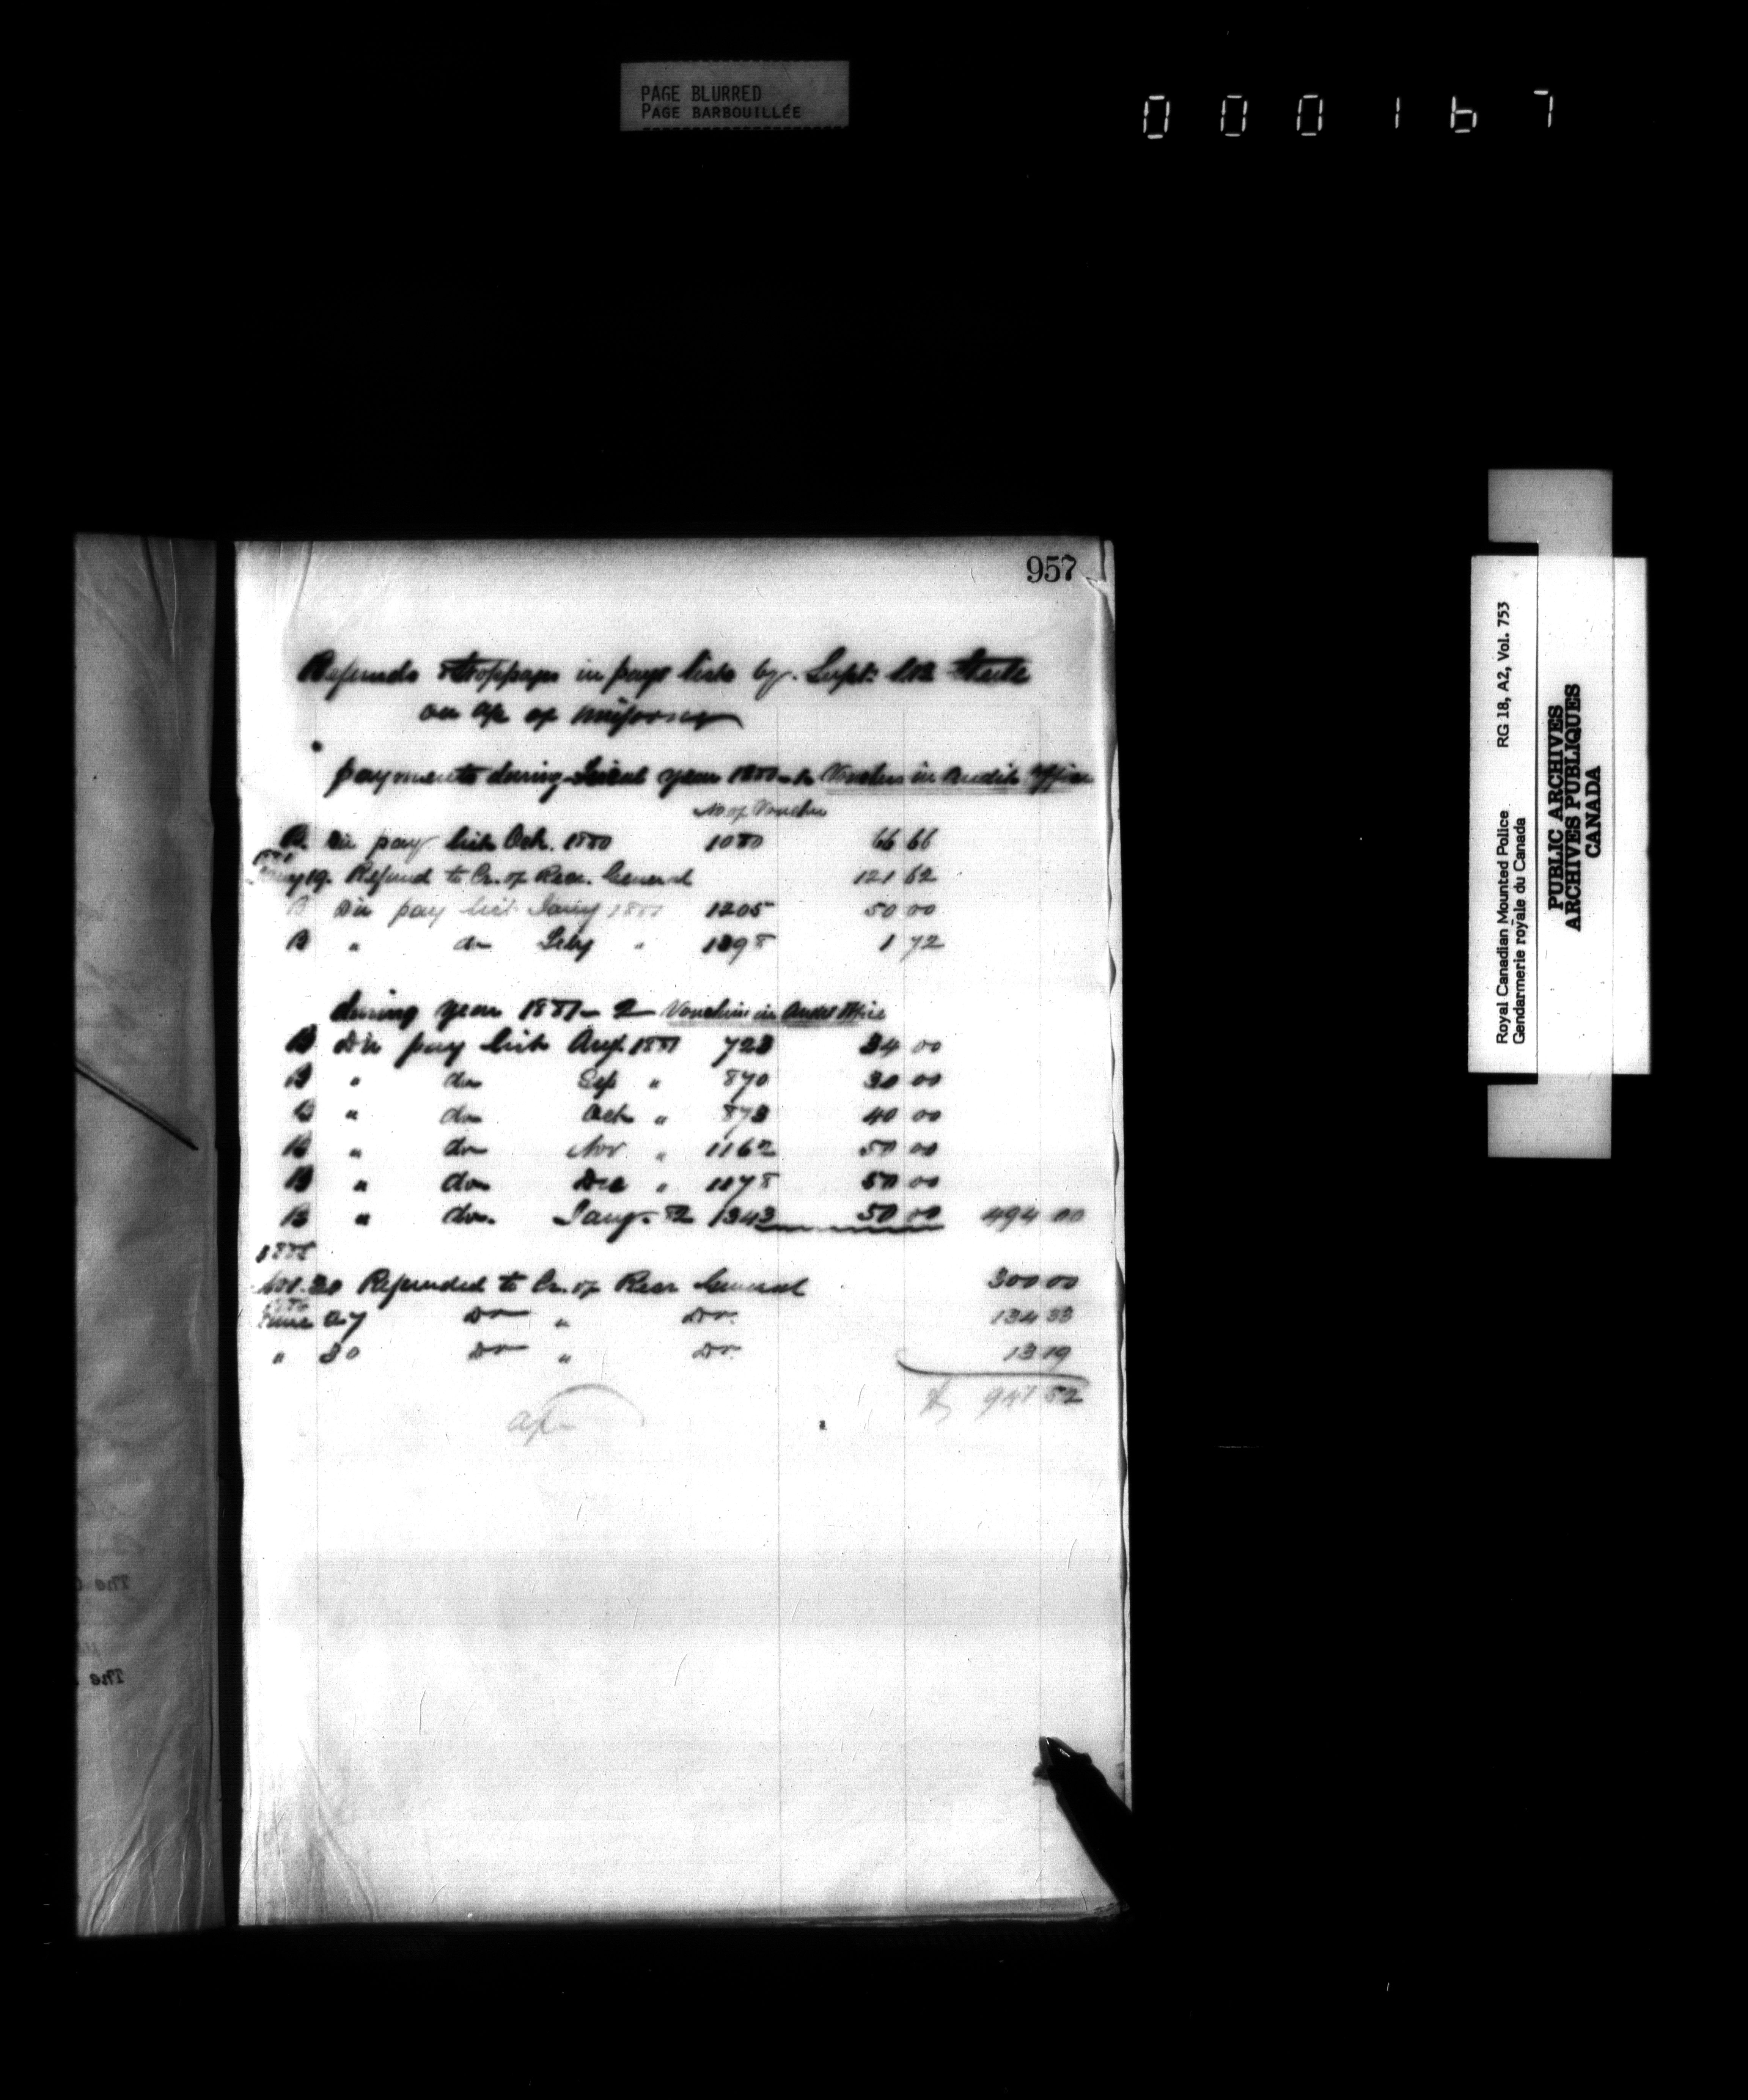 PAGE BLURRED
PAGE BARBOUILLÉE
000167
957
Refunds & Stoppages in pay lists by Supt: Steele
on a/c of uniforms
payments during fiscal year 1880- Vouchers in Audit Office
No of Voucher
B Div pay list Oct. 1880 1080 66 66
1881
Jany 19. Refund to Cr. of Recr. General 121 62
B Div pay list Jany 1881 1205 50 00
B " do Feby " 1 72
during year 1881-2 Vouchers in Audit Office
B Div pay list Aug. 1881 723 34 00
B " do Sep " 870 30 00
B " do Oct " 873 40 00
B " do Nov " 1162 50 00
B " do Dec " 50 00
B " do. Jany. 82 1343 50 00 494 00
1885
Nov. 20 Refunded to Cr. of Recr General 300 00
1886
June 27 Do " Do. 134 33
" 30 Do " Do. 13 19
$ 941 52
Royal Canadian Mounted Police RG 18, A2, Vol. 753
Gendarmerie royale du Canada
PUBLIC ARCHIVES
ARCHIVES PUBLIQUES
CANADA